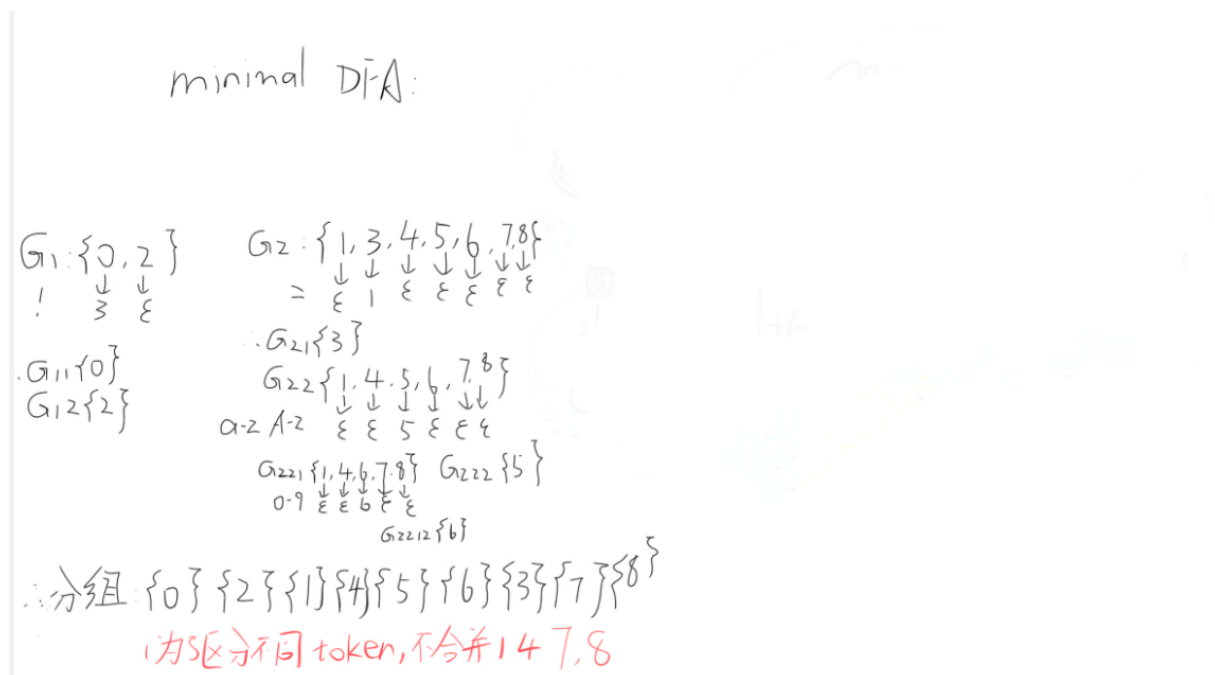 minimal DFA:
G1:{0,2}
! ↓ ↓
3 ε
.G11{0}
G12{2}
G2:{1,3,4,5,6,7,8}
↓ ↓ ↓ ↓ ↓ ↓ ↓
= ε 1 ε ε ε ε ε
∴G21{3}
G22{1,4,5,6,7,8}
↓ ↓ ↓ ↓ ↓ ↓
a-z A-Z ε ε 5 ε ε ε
G221{1,4,6,7,8} G222{5}
↓ ↓ ↓ ↓ ↓
0-9 ε ε 6 ε ε
G2212{6}
∴分组{0}{2}{1}{4}{5}{6}{3}{7}{8}
(为区分不同token,不合并1 4 7,8